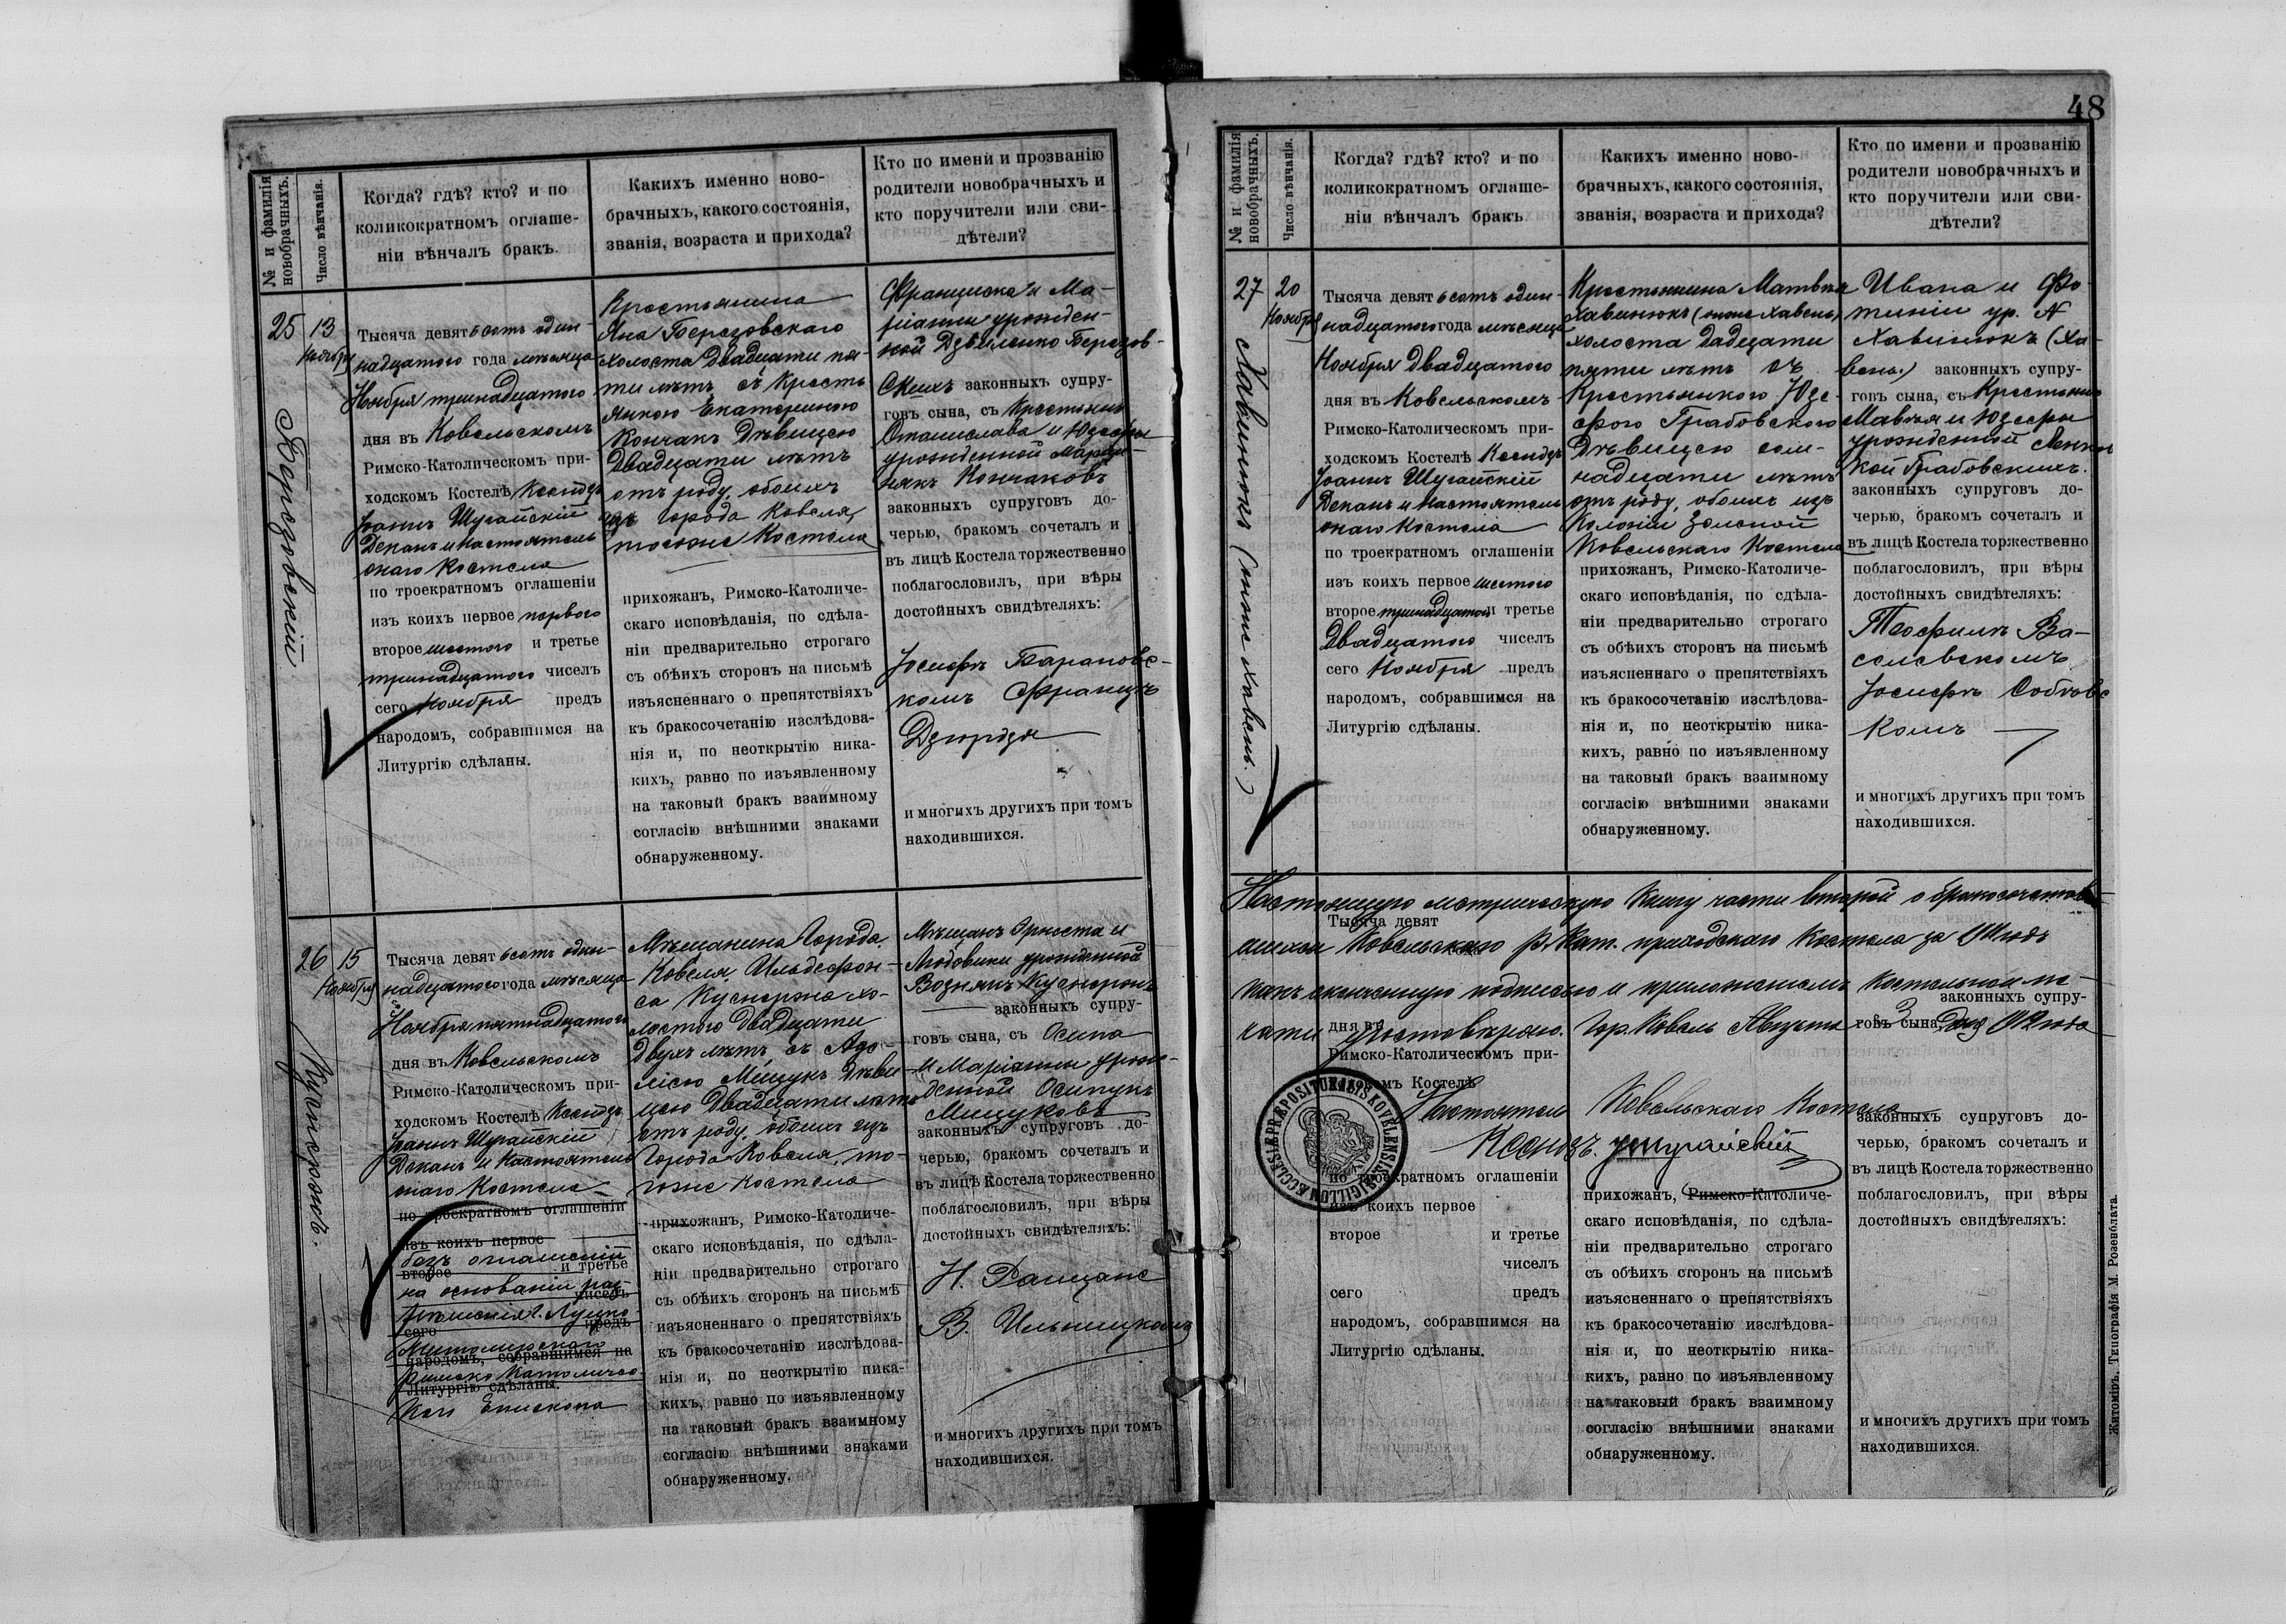 № и фамилія новобрачныхъ.
Число вѣнчанія.
Когда? гдѣ? кто? и по
коликократномъ оглаше-
ніи вѣнчалъ бракъ.
Какихъ именно ново-
брачныхъ, какого состоянія,
званія, возраста и прихода?
Кто по имени и прозванію
родители новобрачныхъ и
кто поручители или сви-
дѣтели?
25
13
Ноября
Березовскій
Тысяча девятьсотъ один-
надцатого года мѣсяца
Ноября тринадцатого
дня въ Ковельскомъ
Римско-Католическомъ при-
ходскомъ Костелѣ Ксендзъ
Іоаннъ Шугайскій
Деканъ и Настоятель
онаго Костела
по троекратномъ оглашеніи
изъ коихъ первое первого
второе шестого и третье
тринадцатого чиселъ
сего Ноября предъ
народомъ, собравшимся на
Литургію сдѣланы.
Крестьянина
Яна Березовскаго
холоста двадцати пя-
ти лѣтъ съ Кресть
янкою Екатериною
Кончакъ Дѣвицею
двадцати лѣтъ
отъ роду, обоихъ
изъ города Ковеля,
тогоже Костела
прихожанъ, Римско-Католиче-
скаго исповѣданія, по сдѣла-
ніи предварительно строгаго
съ обѣихъ сторонъ на письмѣ
изъясненнаго о препятствіяхъ
къ бракосочетанію изслѣдова-
нія и, по неоткрытію ника-
кихъ, равно по изъявленному
на таковый бракъ взаимному
согласію внѣшними знаками
обнаруженному.
Франциска и Ма-
ріанны урожден-
ной Березов-
скихъ законныхъ супру-
говъ сына, съ Крестьянъ
Станислава и Юзефы
урожденной
Кончаковъ
законныхъ супруговъ до-
черью, бракомъ сочеталъ и
въ лицѣ Костела торжественно
поблагословилъ, при вѣры
достойныхъ свидѣтеляхъ:
Іосифъ Барановс-
комъ Францъ
Дзюрдзя
и многихъ другихъ при томъ
находившихся.
26
15
Ноября
Куснержъ.
Тысяча девятьсотъ один-
надцатого года мѣсяца
Ноября пятнадцатого
дня въ Ковельскомъ
Римско-Католическомъ при-
ходскомъ Костелѣ Ксендзъ
Іоаннъ Шугайскій
Деканъ и Настоятель
онаго Костела
по троекратномъ оглашеніи
изъ коихъ первое
безъ оглашеній
второе и третье
на основаніи раз-
чиселъ
рѣшенія г. Луцко-
сего предъ
Житомирскаго
народомъ, собравшимся на
Римско Католичес-
Литургію сдѣланы.
каго Епископа
Мѣщанина Города
Ковеля Ильдефон-
са Куснержа хо-
лостого двадцати
двухъ лѣтъ съ Аде-
лею Мищукъ Дѣви-
цею двадцати лѣтъ
отъ роду, обоихъ изъ
Города Ковеля, то-
гоже Костела
прихожанъ, Римско-Католиче-
скаго исповѣданія, по сдѣла-
ніи предварительно строгаго
съ обѣихъ сторонъ на письмѣ
изъясненнаго о препятствіяхъ
къ бракосочетанію изслѣдова-
нія и, по неоткрытію ника-
кихъ, равно по изъявленному
на таковый бракъ взаимному
согласію внѣшними знаками
обнаруженному.
Мѣщанъ Эрнеста и
Людовики урожденной
Вознякъ Куснержъ
законныхъ супру-
говъ сына, съ Осипа
и Маріанны урож-
денной Осипукъ
Мищуковъ
законныхъ супруговъ до-
черью, бракомъ сочеталъ и
въ лицѣ Костела торжественно
поблагословилъ, при вѣры
достойныхъ свидѣтеляхъ:
В. Ильницкомъ
и многихъ другихъ при томъ
находившихся.
48
№ и фамилія новобрачныхъ.
Число вѣнчанія.
Когда? гдѣ? кто? и по
коликократномъ оглаше-
ніи вѣнчалъ бракъ.
Какихъ именно ново-
брачныхъ, какого состоянія,
званія, возраста и прихода?
Кто по имени и прозванію
родители новобрачныхъ и
кто поручители или сви-
дѣтели?
27
20
Ноября
Хавинюкъ (онже Хавень.)
Тысяча девятьсотъ один-
надцатого года мѣсяца
Ноября двадцатого
дня въ Ковельскомъ
Римско-Католическомъ при-
ходскомъ Костелѣ Ксендзъ
Іоаннъ Шугайскій
Деканъ и Настоятель
онаго Костела
по троекратномъ оглашеніи
изъ коихъ первое шестого
второе тринадцатого и третье
двадцатого чиселъ
сего Ноября предъ
народомъ, собравшимся на
Литургію сдѣланы.
Крестьянина Матвѣя
Хавинюкъ (онже Хавень)
холоста дадцати
пяти лѣтъ съ
Крестьянкою Юзе-
фою Грабовского
Дѣвицею сем-
надцати лѣтъ
отъ роду, обоихъ изъ
Колоніи Зеленой
Ковельскаго Костела
прихожанъ, Римско-Католиче-
скаго исповѣданія, по сдѣла-
ніи предварительно строгаго
съ обѣихъ сторонъ на письмѣ
изъясненнаго о препятствіяхъ
къ бракосочетанію изслѣдова-
нія и, по неоткрытію ника-
кихъ, равно по изъявленному
на таковый бракъ взаимному
согласію внѣшними знаками
обнаруженному.
Ивана и Фо-
тиніи ур. N
Хавинюкъ (Ха-
вень.) законныхъ супру-
говъ сына, съ Крестьянъ
и Юзефы
урожденной
Грабовскихъ.
законныхъ супруговъ до-
черью, бракомъ сочеталъ и
въ лицѣ Костела торжественно
поблагословилъ, при вѣры
достойныхъ свидѣтеляхъ:
Теофилъ Ва-
селевскомъ
Іосифъ
комъ
и многихъ другихъ при томъ
находившихся.
Настоящую метрическую книгу части второй о бракосочетав-
Тысяча девят
шихся Ковельскаго р. Кат. приходскаго Костела за 1911 годъ
какъ оконченную подписью и приложеніемъ костельной пе-
законныхъ супру-
чати удостовѣряю. Гор. Ковель Августа 3 дня 1912 года
дня въ
говъ сына,
Римско-Католическомъ при-
ходскомъ Костелѣ
Настоятель Ковельскаго Костела
Ксендзъ. Шугайскій
SIGILLUM ECCLESIÆ PRÆPOSITURALIS KOVELENSIS
законныхъ супруговъ до-
черью, бракомъ сочеталъ и
въ лицѣ Костела торжественно
поблагословилъ, при вѣры
достойныхъ свидѣтеляхъ:
по троекратномъ оглашеніи
изъ коихъ первое
второе и третье
чиселъ
сего предъ
народомъ, собравшимся на
Литургію сдѣланы.
прихожанъ, Римско-Католиче-
скаго исповѣданія, по сдѣла-
ніи предварительно строгаго
съ обѣихъ сторонъ на письмѣ
изъясненнаго о препятствіяхъ
къ бракосочетанію изслѣдова-
нія и, по неоткрытію ника-
кихъ, равно по изъявленному
на таковый бракъ взаимному
согласію внѣшними знаками
обнаруженному.
и многихъ другихъ при томъ
находившихся.
Житоміръ. Типографія М. Розенблата.